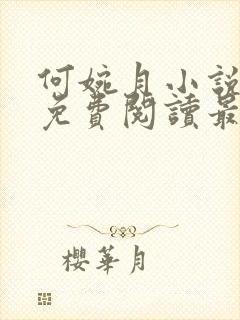 何婉月小說
免費閱讀最
櫻華月